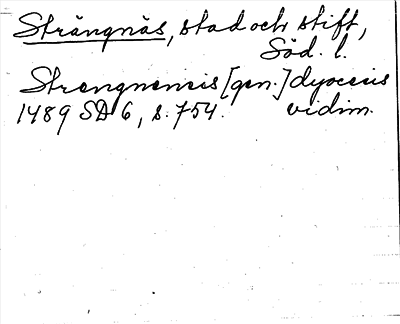 Strängnäs, stad och stift,
Söd. l.
Strengnensis [gen.] dyocesis
1489 SD 6, s. 754. vidim.